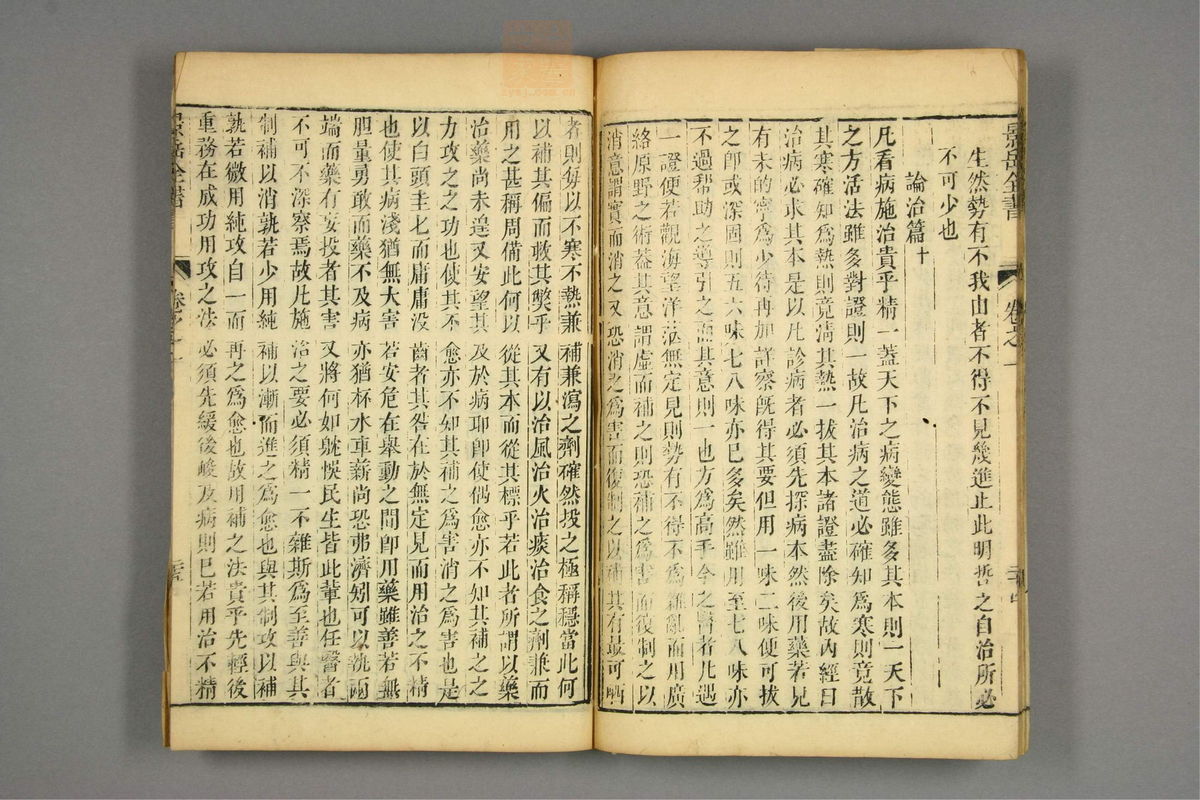 景岳全書 卷之一
生然勢有不我由者不得不見幾進止此明哲之自治所必
不可少也
論治篇十
凡看病施治貴乎精一蓋天下之病變態雖多其本則一天下
之方活法雖多對證則一故凡治病之道必確知爲寒則竟散
其寒確知爲熱則竟淸其熱一拔其本諸證盡除矣故內經曰
治病必求其本是以凡診病者必須先探病本然後用藥若見
有未的寧爲少待再加詳察旣得其要但用一味二味便可拔
之卽或深固則五六味七八味亦已多矣然雖用至七八味亦
不過帮助之導引之而其意則一也方爲高手今之醫者凡遇
一證便若觀海望洋茫無定見則勢有不得不爲雜亂而用廣
絡原野之術蓋其意謂虛而補之則恐補之爲害而復制之以
消意謂實而消之又恐消之爲害而復制之以補其有最可哂
者則每以不寒不熱兼補兼瀉之劑確然投之極稱穩當此何
以補其偏而救其獘乎又有以治風治火治痰治食之劑兼而
用之甚稱周備此何以從其本而從其標乎若此者所謂以藥
治藥尚未遑又安望其及於病耶卽使偶愈亦不知其補之之
力攻之之功也使其不愈亦不知其補之爲害消之爲害也是
以白頭圭匕而庸庸没齒者其咎在於無定見而用治之不精
也使其病淺猶無大害若安危在舉動之間卽用藥雖善若無
胆量勇敢而藥不及病亦猶杯水車薪尚恐弗濟矧可以執兩
端而藥有妄投者其害又將何如躭悞民生皆此輩也任醫者
不可不深察焉故凡施治之要必須精一不雜斯爲至善與其
制補以消孰若少用純補以漸而進之爲愈也與其制攻以補
孰若微用純攻自一而再之爲愈也故用補之法貴乎先輕後
重務在成功用攻之法必須先緩後峻及病則已若用治不精
景岳全書 卷之一